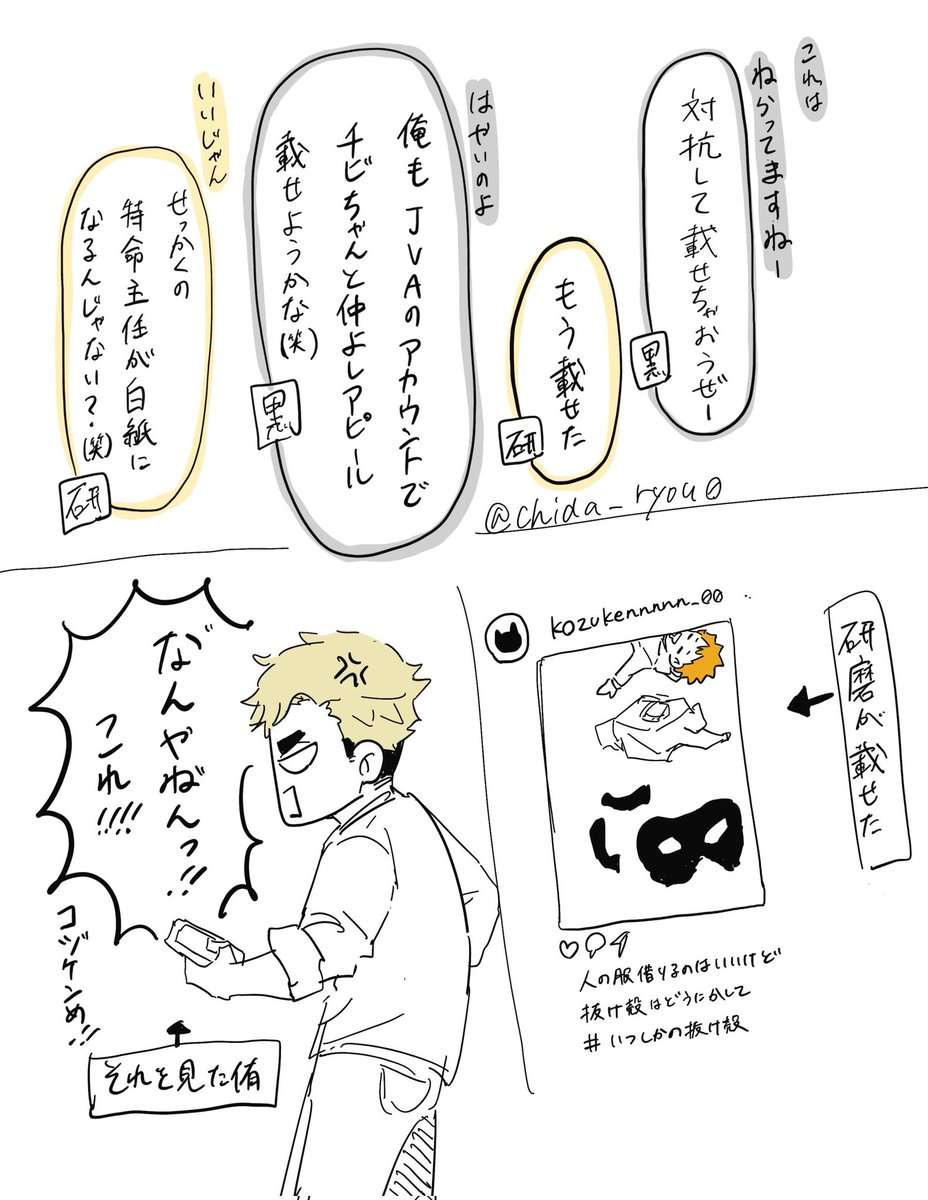 これは
ねらってますねー
対抗して載せちゃおうぜー
黒
もう載せた
研
はやいのよ
俺もJVAのアカウントで
チビちゃんと仲よしアピール
載せようかな(笑)
黒
いいじゃん
せっかくの
特命主任が白紙に
なるんじゃない?(笑)
研
@chida_ryou0
研磨が載せた
kozukennnnn_00
人の服借りるのはいいけど
抜け殻はどうにかして
#いつしかの抜け殻
なんやねんっ!!
コレ!!!!
コヅケンめ!!
それを見た侑